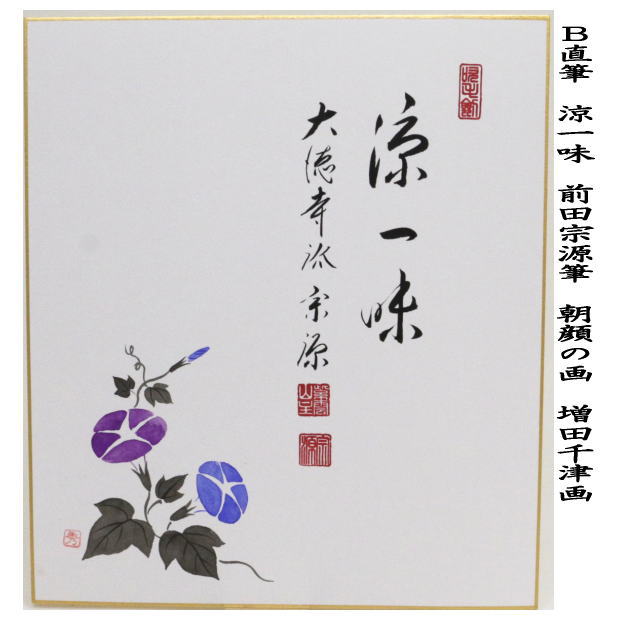 B直筆 涼一味 前田宗源筆 朝顔の画 増田千津画
涼一味
大徳寺派宗源